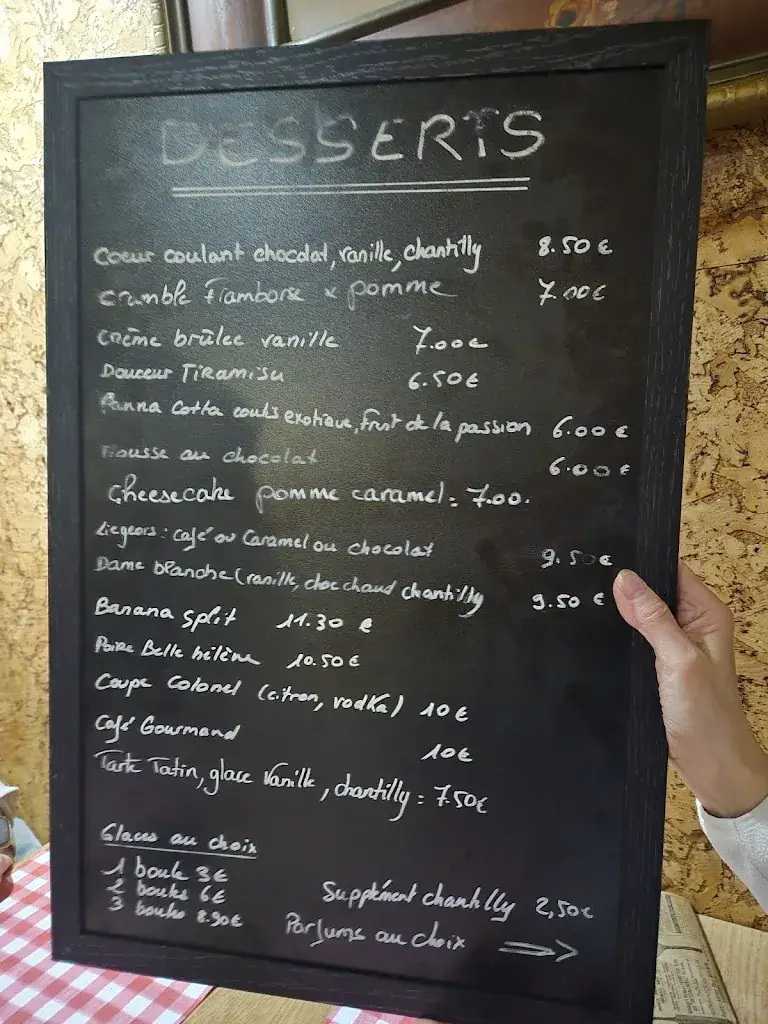 DESSERTS
Coeur coulant chocolat, vanille, chantilly 8.50€
crumble framboise x pomme 7.00€
Crème brûlée vanille 7.00€
Douceur TIRamisu 6.50€
Panna Cotta coulis exotique, fruit de la passion 6.00€
Mousse au chocolat 6.00€
Cheesecake pomme caramel: 7.00.
Liegeois: café ou Caramel ou chocolat 9.50€
Dame blanche (vanille, choc chaud chantilly 9.50€
Banana split 11.30€
Poire Belle hélène 10.50€
Coupe Colonel (citron, vodka) 10€
Café Gourmand 10€
Tarte Tatin, glace Vanille, chantilly: 7.50€
Glaces au choix
1 boule 3€
2 boules 6€
3 boules 8.90€
Supplément chantilly 2,50€
Parfums au choix ⇒